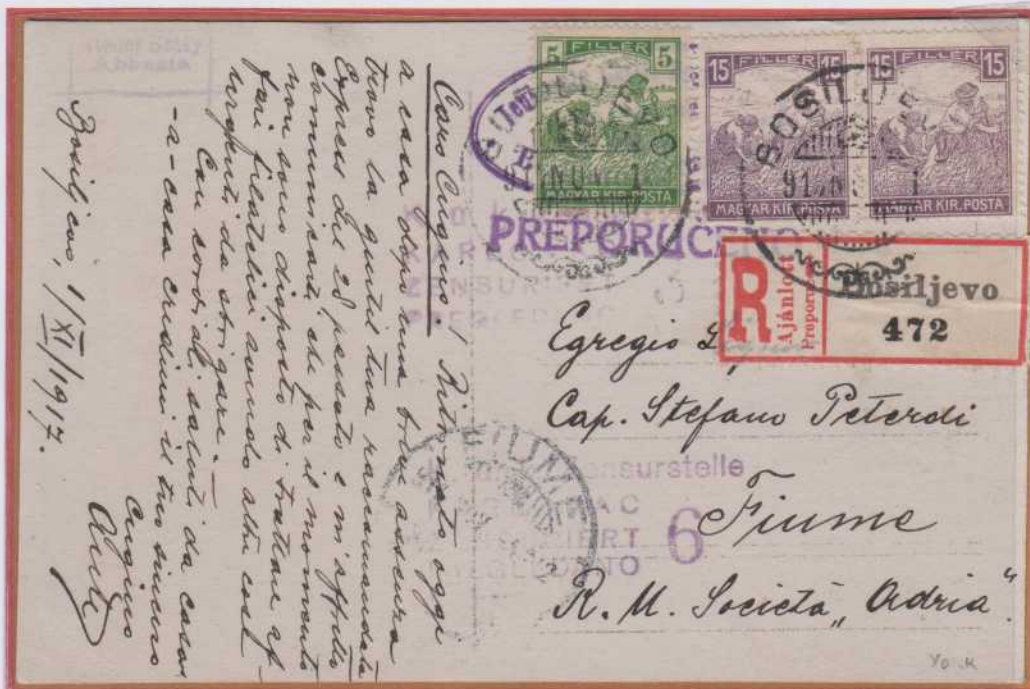 5 FILLÉR 5
MAGYAR KIR. POSTA
15 FILLÉR 15
MAGYAR KIR. POSTA
15 FILLÉR 15
MAGYAR KIR. POSTA
BOSILJEVO
PREPORUČENO
R
Ajánlott
Bosiljevo
472
Egregio
Cap. Stefano Peterdi
Fiume
R. U. Società „Adria".
FIUME
Zensurstelle
6
Abbazia
Caro Cugino! Ritornato oggi
a casa dopo una breve assenza
trovo la gentil tua raccomandata
Expres del 28 passato e m'affretto
comunicarti che per il momento
non sono disposto di trattare af-
fari filatelici avendo altre cose
urgenti da sbrigare.-
Con cordiali saluti da casa
-a-casa credimi il tuo sincero
Cugino
Bosiljevo, 1/XI/1917.